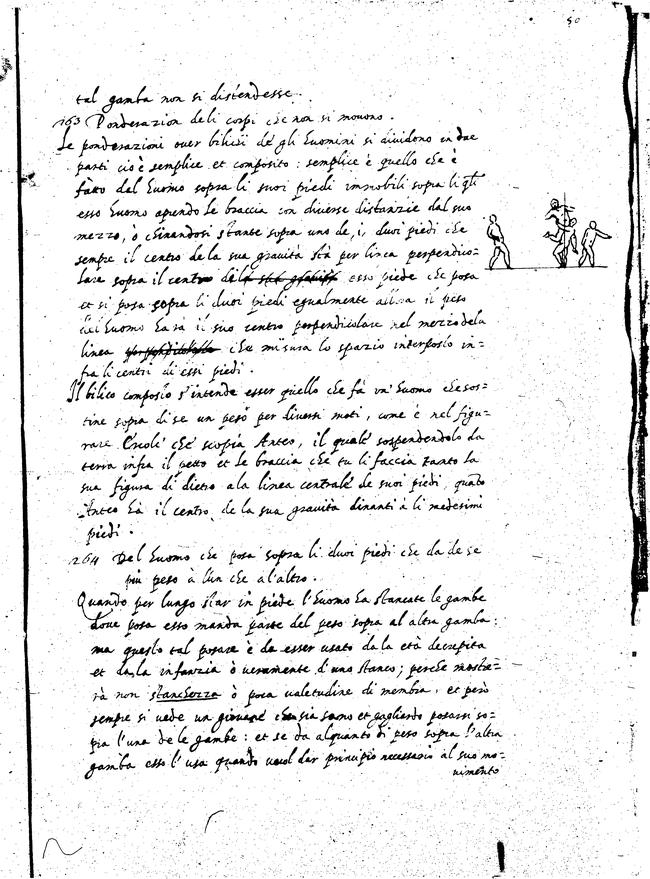 50
tal gamba non si distendesse.
263 Ponderazion deli corpi che non si mouono.
Le ponderazioni ouer bilichi de gli huomini si diuidono in due
parti cioè semplice et composito: semplice è quello che è
fatto dal huomo sopra li suoi piedi immobili sopra li q̃li
esso huomo aprendo le braccia con diuerse distanzie dal suo
mezzo, ò chinandosi stante sopra uno de, i, duoi piedi che
sempre il centro de la sua grauità stà per linea perpendico=
lare sopra il centro del esso piede che posa
et si posa sopra li duoi piedi egualmente allora il peso
del huomo harà il suo centro perpendicolare nel mezzo dela
linea che misura lo spazio interposto in=
fra li centri di essi piedi.
Il bilico composto s'intende esser quello che fà un' huomo che sos=
tine sopra di se un peso per diuersi moti, come è nel figu=
rare Ercole che scopia Anteo, il quale sospendendolo da
terra infra il petto et le braccia che tu li faccia tanto la
sua figura di dietro ala linea centrale de suoi piedi, quãto
Anteo hà il centro de la sua grauità dinanti à li medesimi
piedi.
264 Del huomo che posa sopra li duoi piedi che da de se
più peso à l'un che à l'altro.
Quando per lungo star in piede l'huomo ha stancate le gambe
doue posa esso manda parte del peso sopra al altra gamba:
ma questo tal posare è da esser usato da la età decrepita
et da la infanzia ò ueramente d'uno stanco; perche mostre=
rà non stanchezza ò poca ualetudine di membra, et però
sempre si uede un giouane che sia sano et gagliardo posarsi so=
pra l'una de le gambe: et se da alquanto di peso sopra l'altra
gamba esso l'usa quando uuol dar principio necessario al suo mo=
uimento